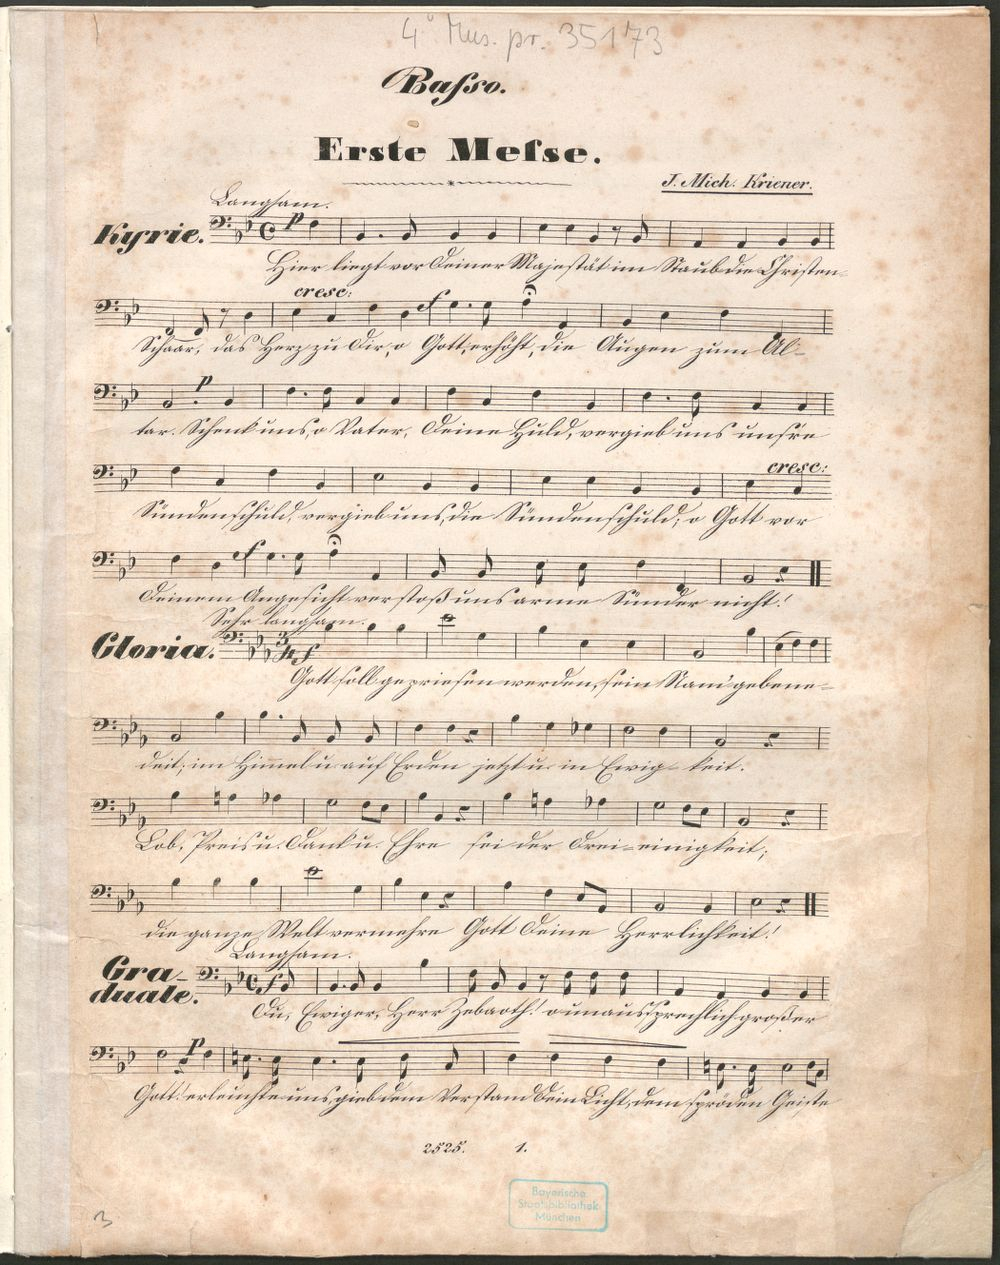 4° Mus. pr. 35173
Basso.
Erste Messe.
J. Mich. Kriener.
Langsam.
Kyrie.
p
Hier liegt vor Deiner Majestät im Staub die Christen-
cresc: f
Schaar, das Herz zu Dir, o Gott, erhöht, die Augen zum Al-
p
tar. Schenk uns, o Vater, Deine Huld, vergieb uns unsre
cresc:
Sündenschuld, vergieb uns, die Sündenschuld; o Gott vor
f
Deinem Angesicht verstoß uns arme Sünder nicht!
Sehr langsam.
Gloria.
3/4 f
Gott soll gepriesen werden, sein Nam' gebene-
deit; im Himmel u. auf Erden jetzt u. in Ewig-keit.
Lob, Preis u. Dank u. Ehre sei der Drei-einigkeit;
die ganze Welt vermehre Gott Deine Herrlichkeit!
Langsam.
Gra-
duale.
f
Du, Ewiger, Herr Zebaoth! o unaussprechlich großer
p
Gott! erleuchte uns, gieb dem Verstand Dein Licht, dem spröden Geiste
2525. 1.
Bayerische
Staatsbibliothek
München